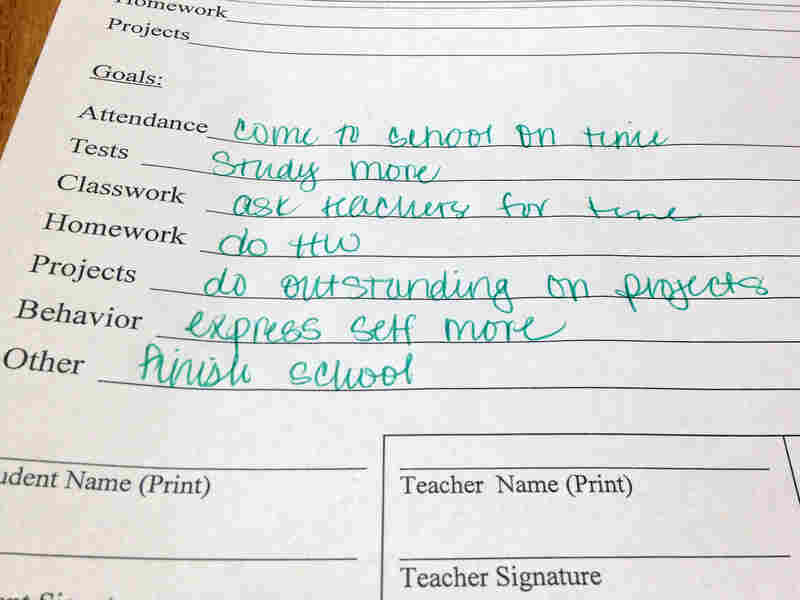 Homework
Projects
Goals:
Attendance come to school on time
Tests study more
Classwork ask teachers for time
Homework do HW
Projects do outstanding on projects
Behavior express self more
Other finish school
udent Name (Print)
Teacher Name (Print)
Teacher Signature